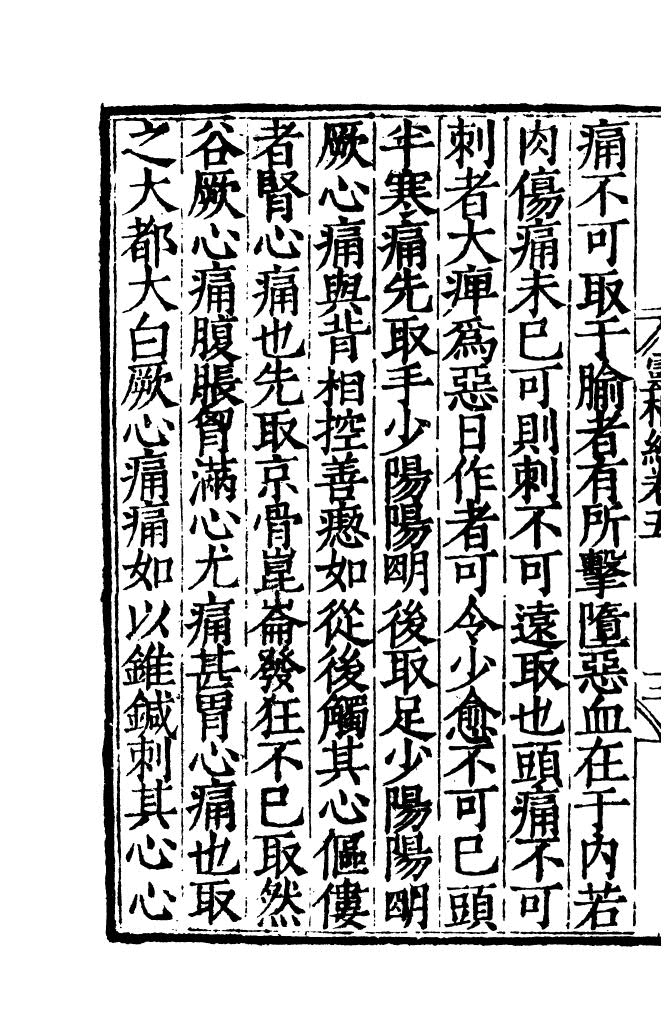 痛不可取于腧者有所擊墮惡血在于內若
肉傷痛未已可則刺不可遠取也頭痛不可
刺者大痺爲惡日作者可令少愈不可已頭
半寒痛先取手少陽陽明後取足少陽陽明
厥心痛與背相控善瘛如從後觸其心傴僂
者腎心痛也先取京骨崑崙發狂不已取然
谷厥心痛腹脹胷滿心尤痛甚胃心痛也取
之大都大白厥心痛痛如以錐鍼刺其心心